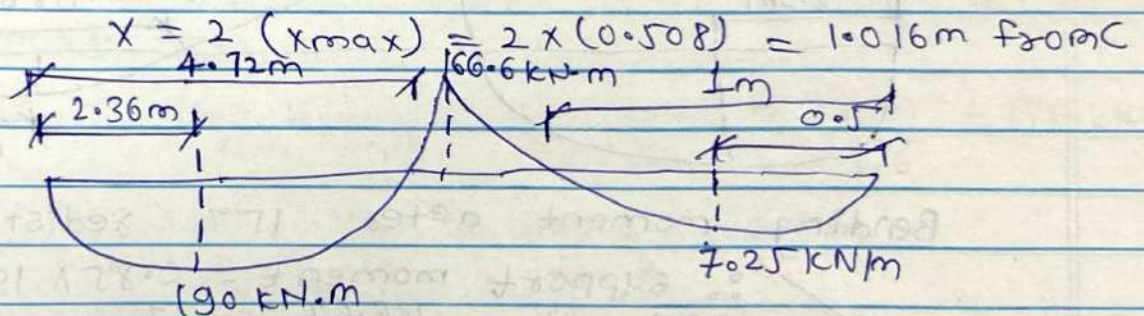 X = 2 (xmax) = 2 x (0.508) = 1.016m from C
4.72m
166.6 kN-m
1m
2.36m
0.5
7.25 KN/m
190 kN.m